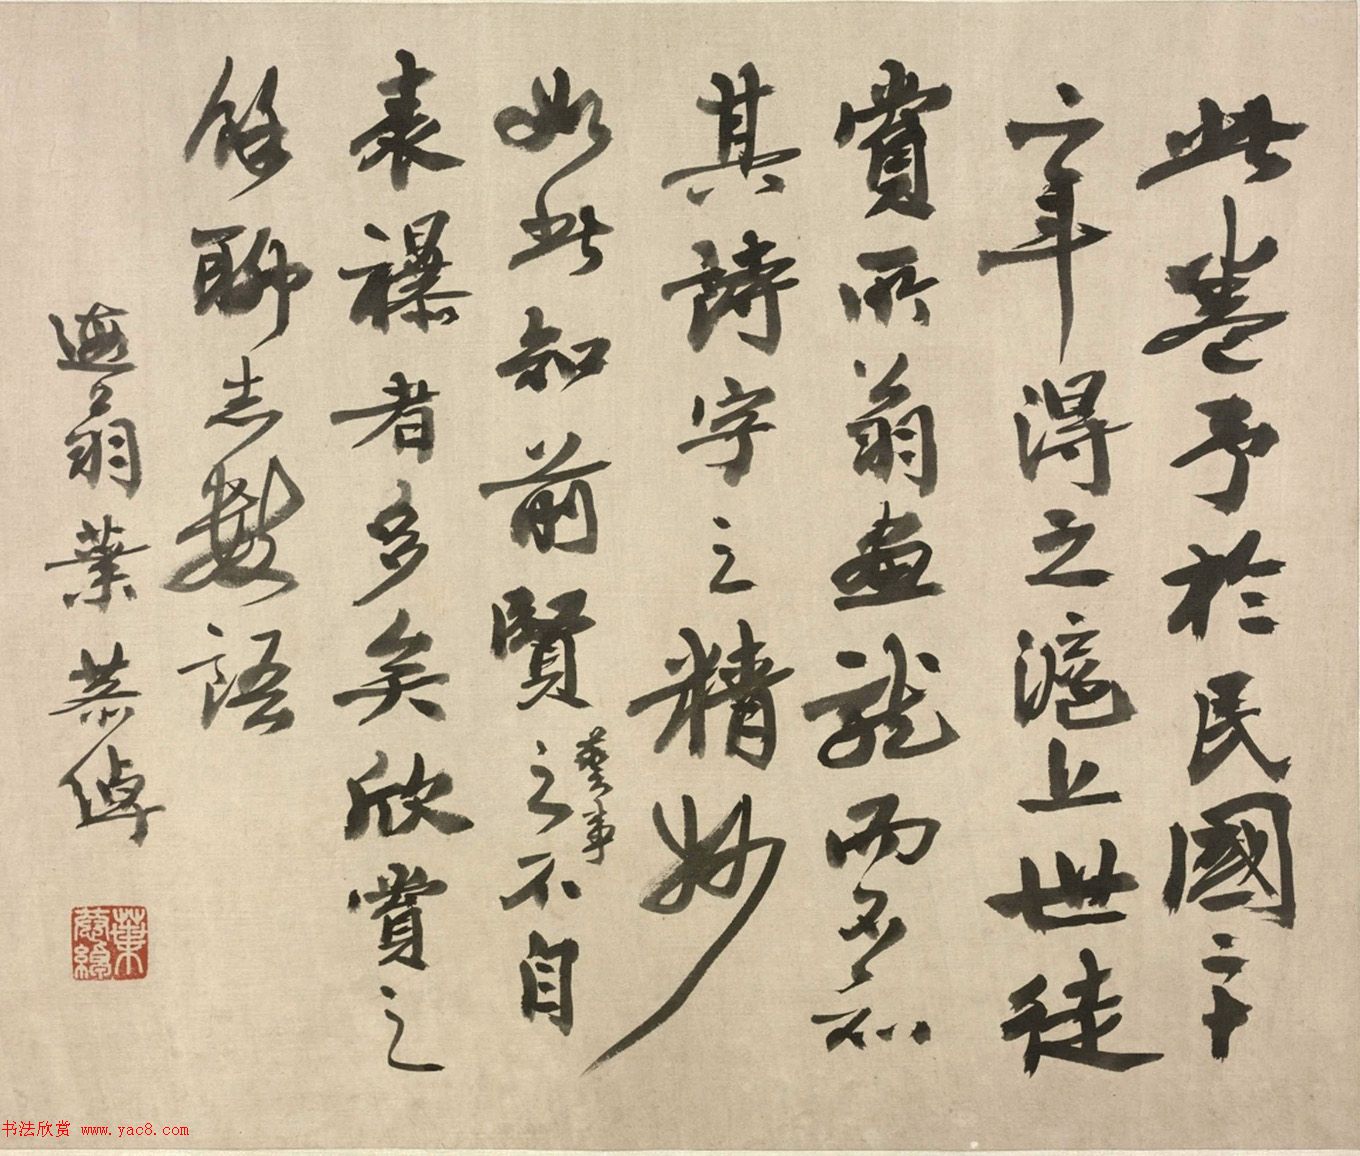 此卷予於民國二十
六年得之滬上世徒
賞所翁畫龍而多不知
其詩字之精妙
如此知前賢之藝事不自
表襮者多矣欣賞之
餘聊志數語
遐翁葉恭綽
葉恭綽
书法欣赏 www.yac8.com